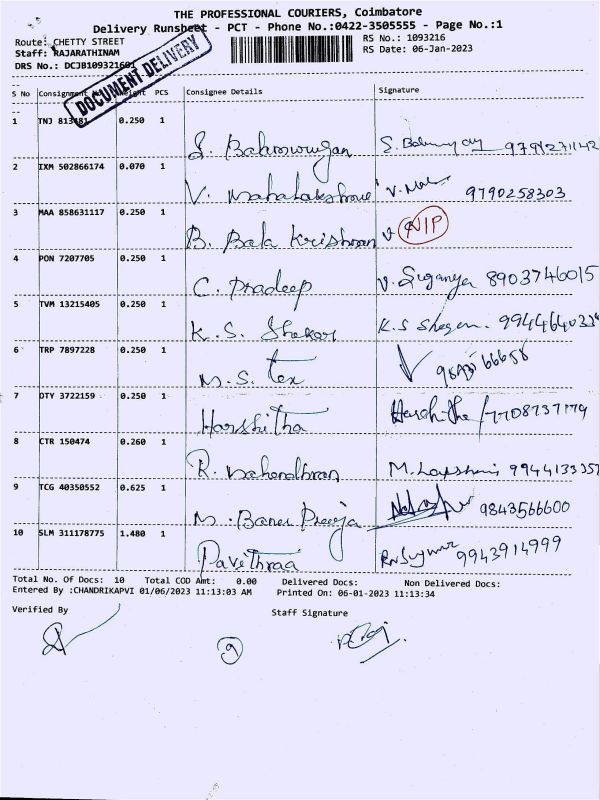 THE PROFESSIONAL COURIERS, Coimbatore
Delivery Runsheet - PCT - Phone No.:0422-3505555 - Page No.:1
Route: CHETTY STREET
RS No.: 1093216
Staff: RAJARATHINAM
RS Date: 06-Jan-2023
DRS No.: DCJB1093216
DOCUMENT DELIVERY
S No Consignment PCS Consignee Details Signature
1 TNJ 813 0.250 1
2 IXM 502866174 0.070 1
V. 9790258303
3 MAA 858631117 0.250 1
B. Bala Krishnan NIP
4 PON 7207705 0.250 1
C. Pradeep V. Suganya 8903746015
5 TVM 13215405 0.250 1
K.S. Shekar K.S
6 TRP 7897228 0.250 1
M.S. Tex
7 OTY 3722159 0.250 1
Harshitha
8 CTR 150474 0.260 1
R. Mahendhran M. 994413335
9 TCG 40350552 0.625 1
M. Banu 9843566600
10 SLM 311178775 1.480 1
Pavithraa 9943914999
Total No. Of Docs: 10 Total COD Amt: 0.00 Delivered Docs: Non Delivered Docs:
Entered By :CHANDRIKAPVI 01/06/2023 11:13:03 AM Printed On: 06-01-2023 11:13:34
Verified By Staff Signature
9